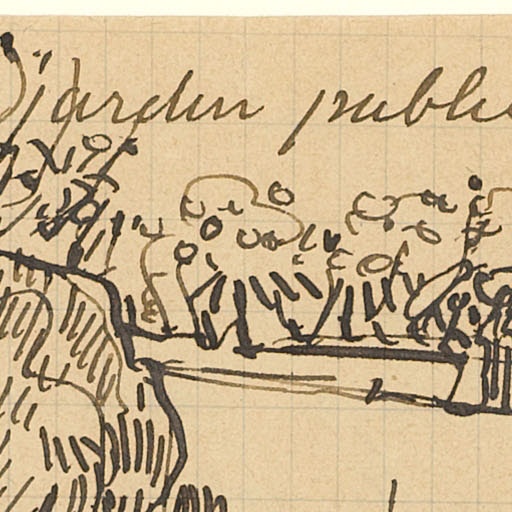 jardin public